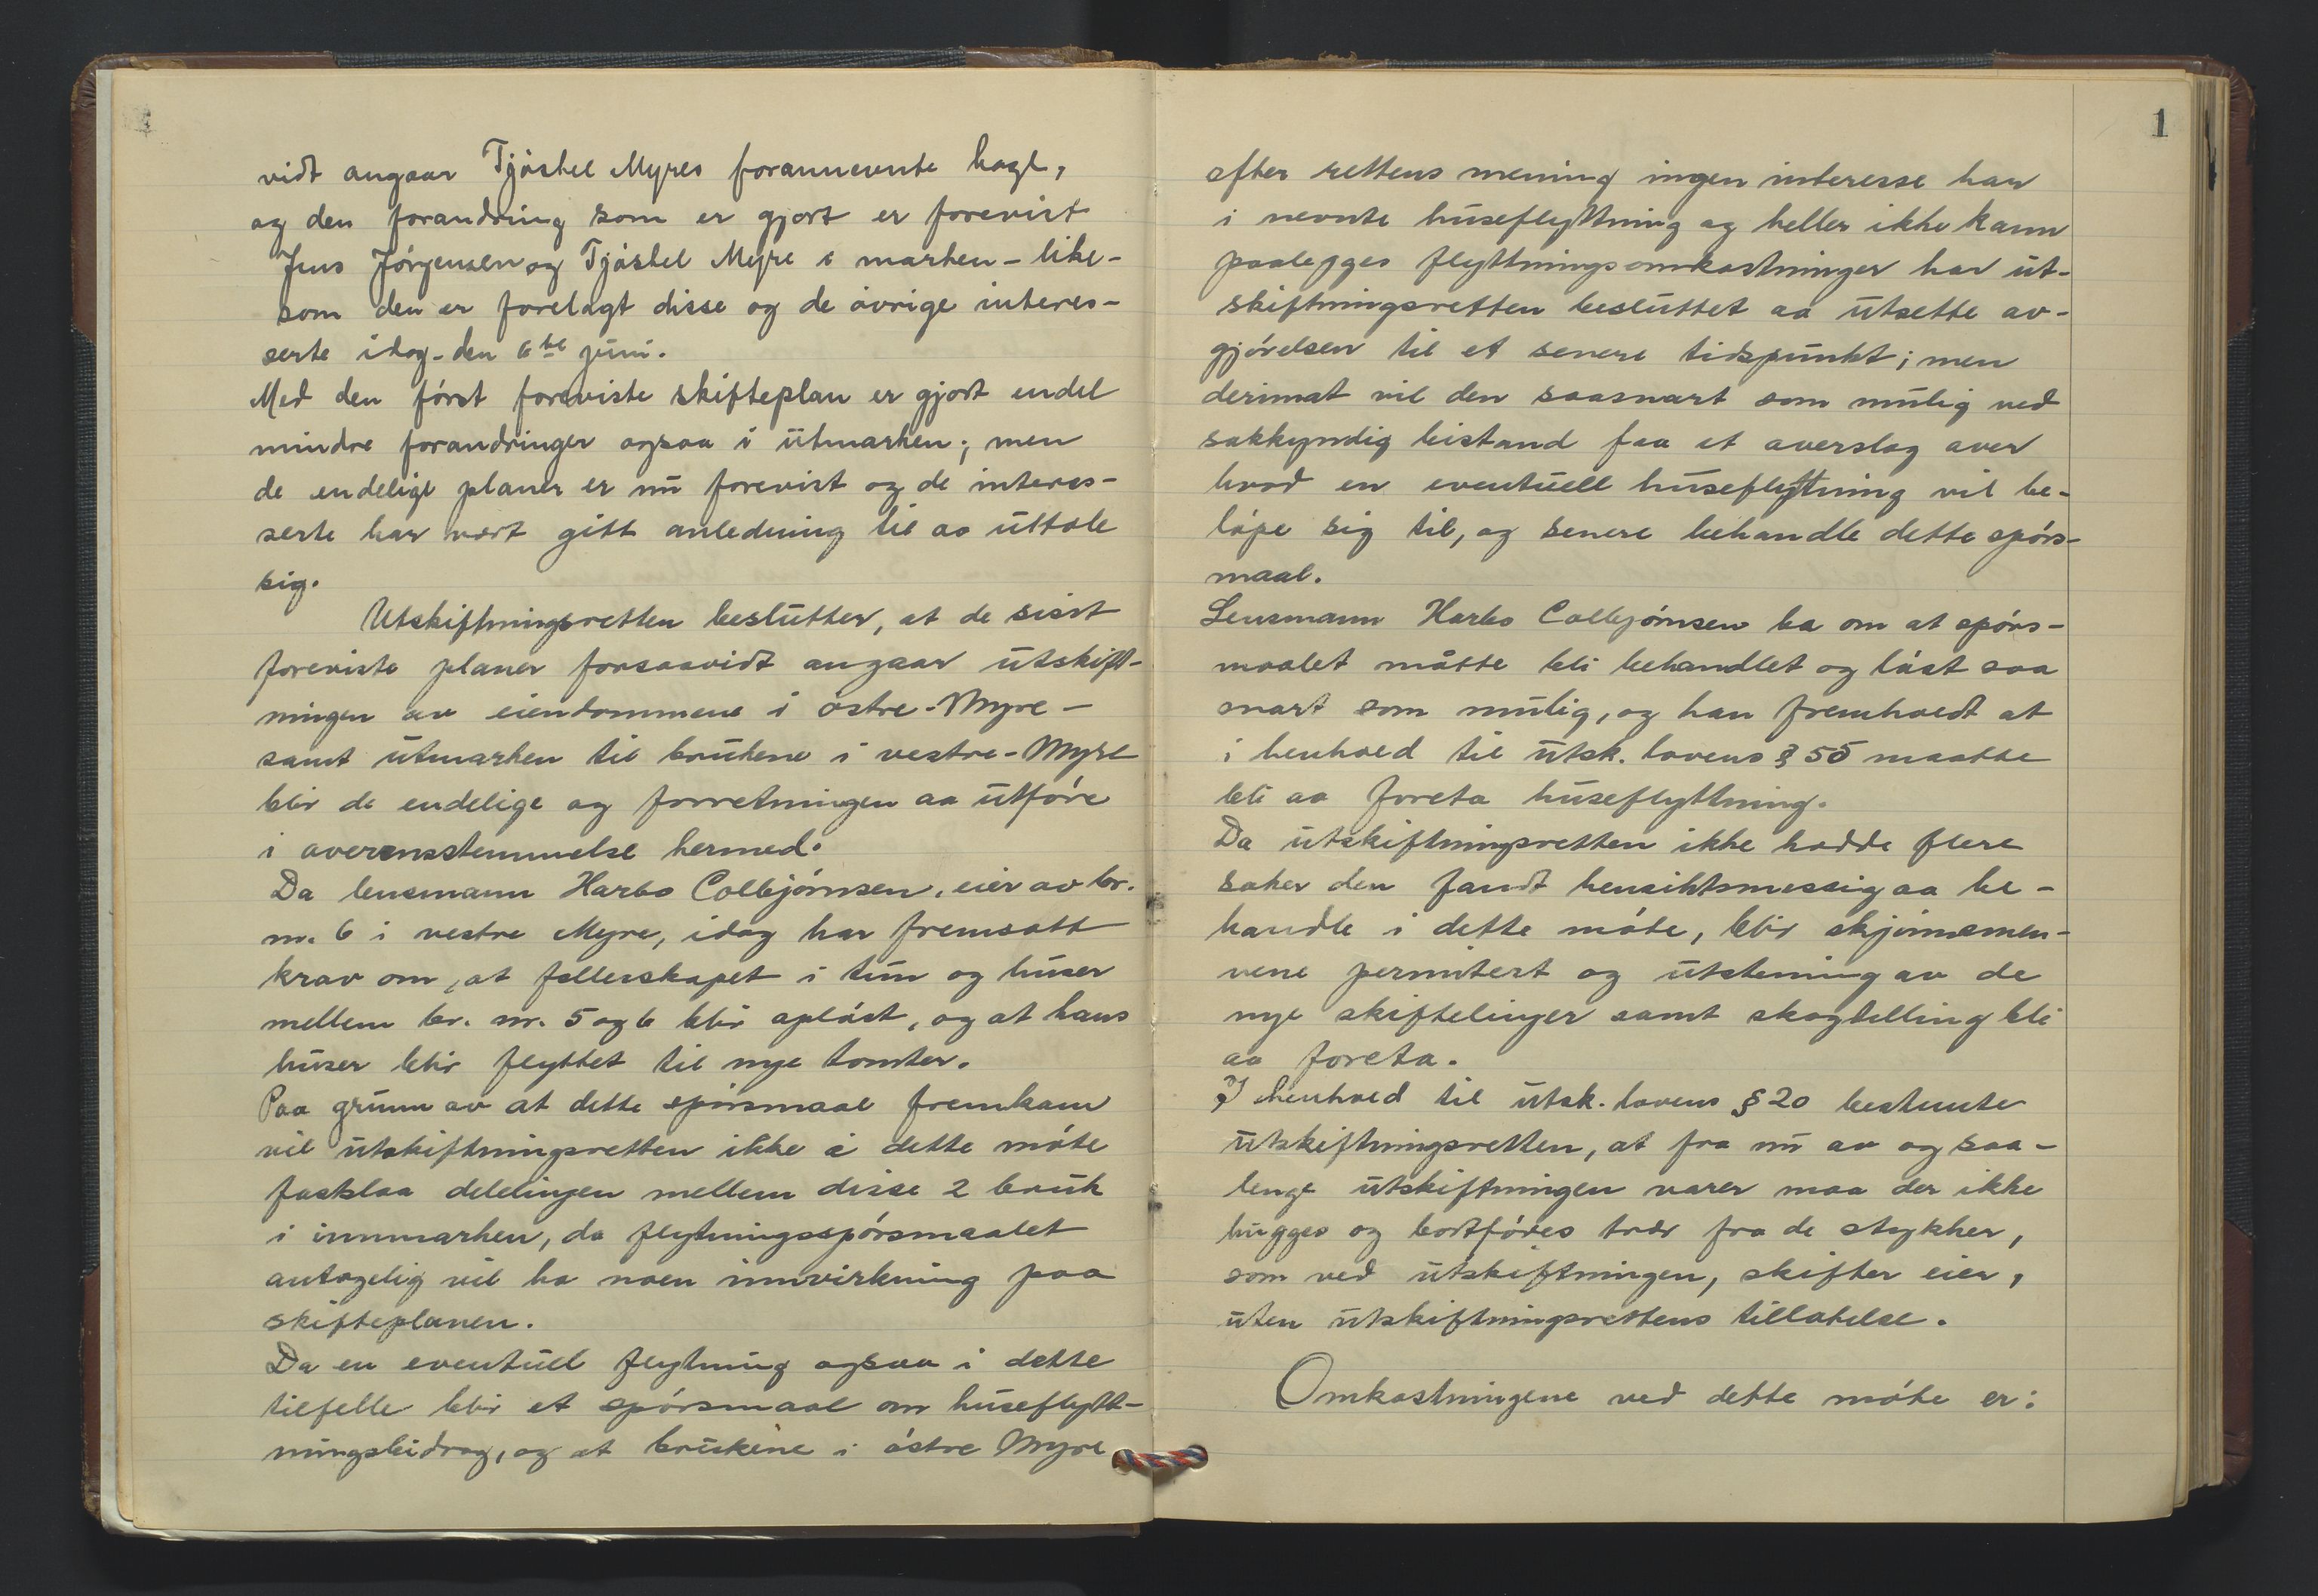 vidt angaar Tjöstel Myres forannevnte hage,
og den forandring som er gjort er forevist
Jens Jörgensen og Tjöstel Myre i marken - like-
som den er forelagt disse og de övrige interes-
serte idag - den 6te juni.
Med den först foreviste skifteplan er gjort endel
mindre forandringer ogsaa i utmarken; men
de endelige planer er nu forevist og de interes-
serte har vært gitt anledning til aa uttale
sig.
Utskiftningsretten beslutter, at de sist
foreviste planer forsaavidt angaar utskift-
ningen av eiendommene i östre-Myre -
samt utmarken til brukene i vestre-Myre
blir de endelige og forretningen aa utföre
i overensstemmelse hermed.
Da lensmann Harbo Colbjörnsen, eier av br.
nr. 6 i vestre Myre, idag har fremsatt
krav om, at fellerskapet i tun og huser
mellem br. nr. 5 og 6 blir oplöst, og at hans
huser blir flyttet til nye tomter.
Paa grunn av at dette spörsmaal fremkom
vil utskiftningsretten ikke i dette möte
fastslaa delelingen mellem disse 2 bruk
i innmarken, da flytningsspörsmaalet
antagelig vil ha noen innvirkning paa
skifteplanen.
Da en eventuel flytning ogsaa i dette
tilfelle blir et spörsmaal om huseflytt-
ningsbidrag, og at brukene i östre Myre
1
efter rettens mening ingen interesse har
i nevnte huseflyttning og heller ikke kann
paalegges flyttningsomkostninger har ut-
skiftningsretten besluttet aa utsette av-
gjörelsen til et senere tidspunkt; men
derimot vil den saasnart som mulig ved
sakkyndig bistand faa et overslag over
hvad en eventuell huseflyttning vil be-
löpe sig til, og senere behandle dette spörs-
maal.
Lensmann Harbo Colbjörnsen ba om at spörs-
maalet måtte bli behandlet og löst saa
snart som mulig, og han fremholdt at
i henhold til utsk. lovens § 55 maatte
bli aa foreta huseflyttning.
Da utskiftningsretten ikke hadde flere
saker den fandt hensiktsmessig aa be-
handle i dette möte, blir skjönnsmen-
nene permitert og utstening av de
nye skiftelinjer samt skogtelling bli
aa foreta.
I henhold til utsk. lovens § 20 bestemte
utskiftningsretten, at fra nu av og saa-
lenge utskiftningen varer maa der ikke
hugges og bortföres trær fra de stykker,
som ved utskiftningen, skifter eier,
uten utskiftningsrettens tillatelse.
Omkostningene ved dette möte er: